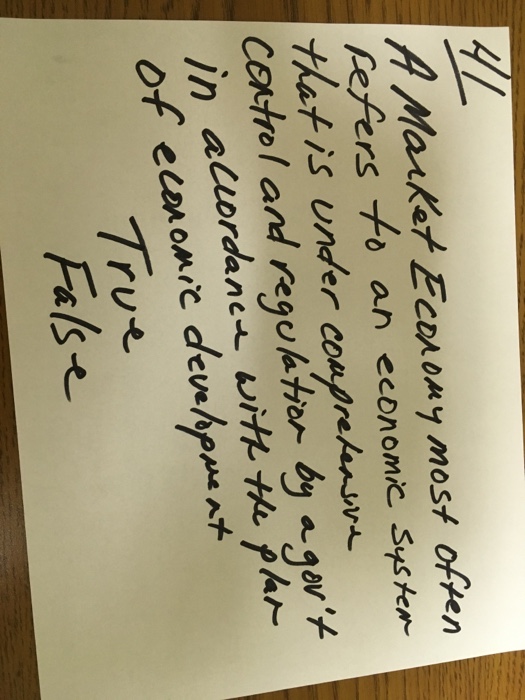 41
A Market Economy most often
refers to an economic system
that is under comprehensive
control and regulation by a gov't
in accordance with the plan
of economic development
True
False